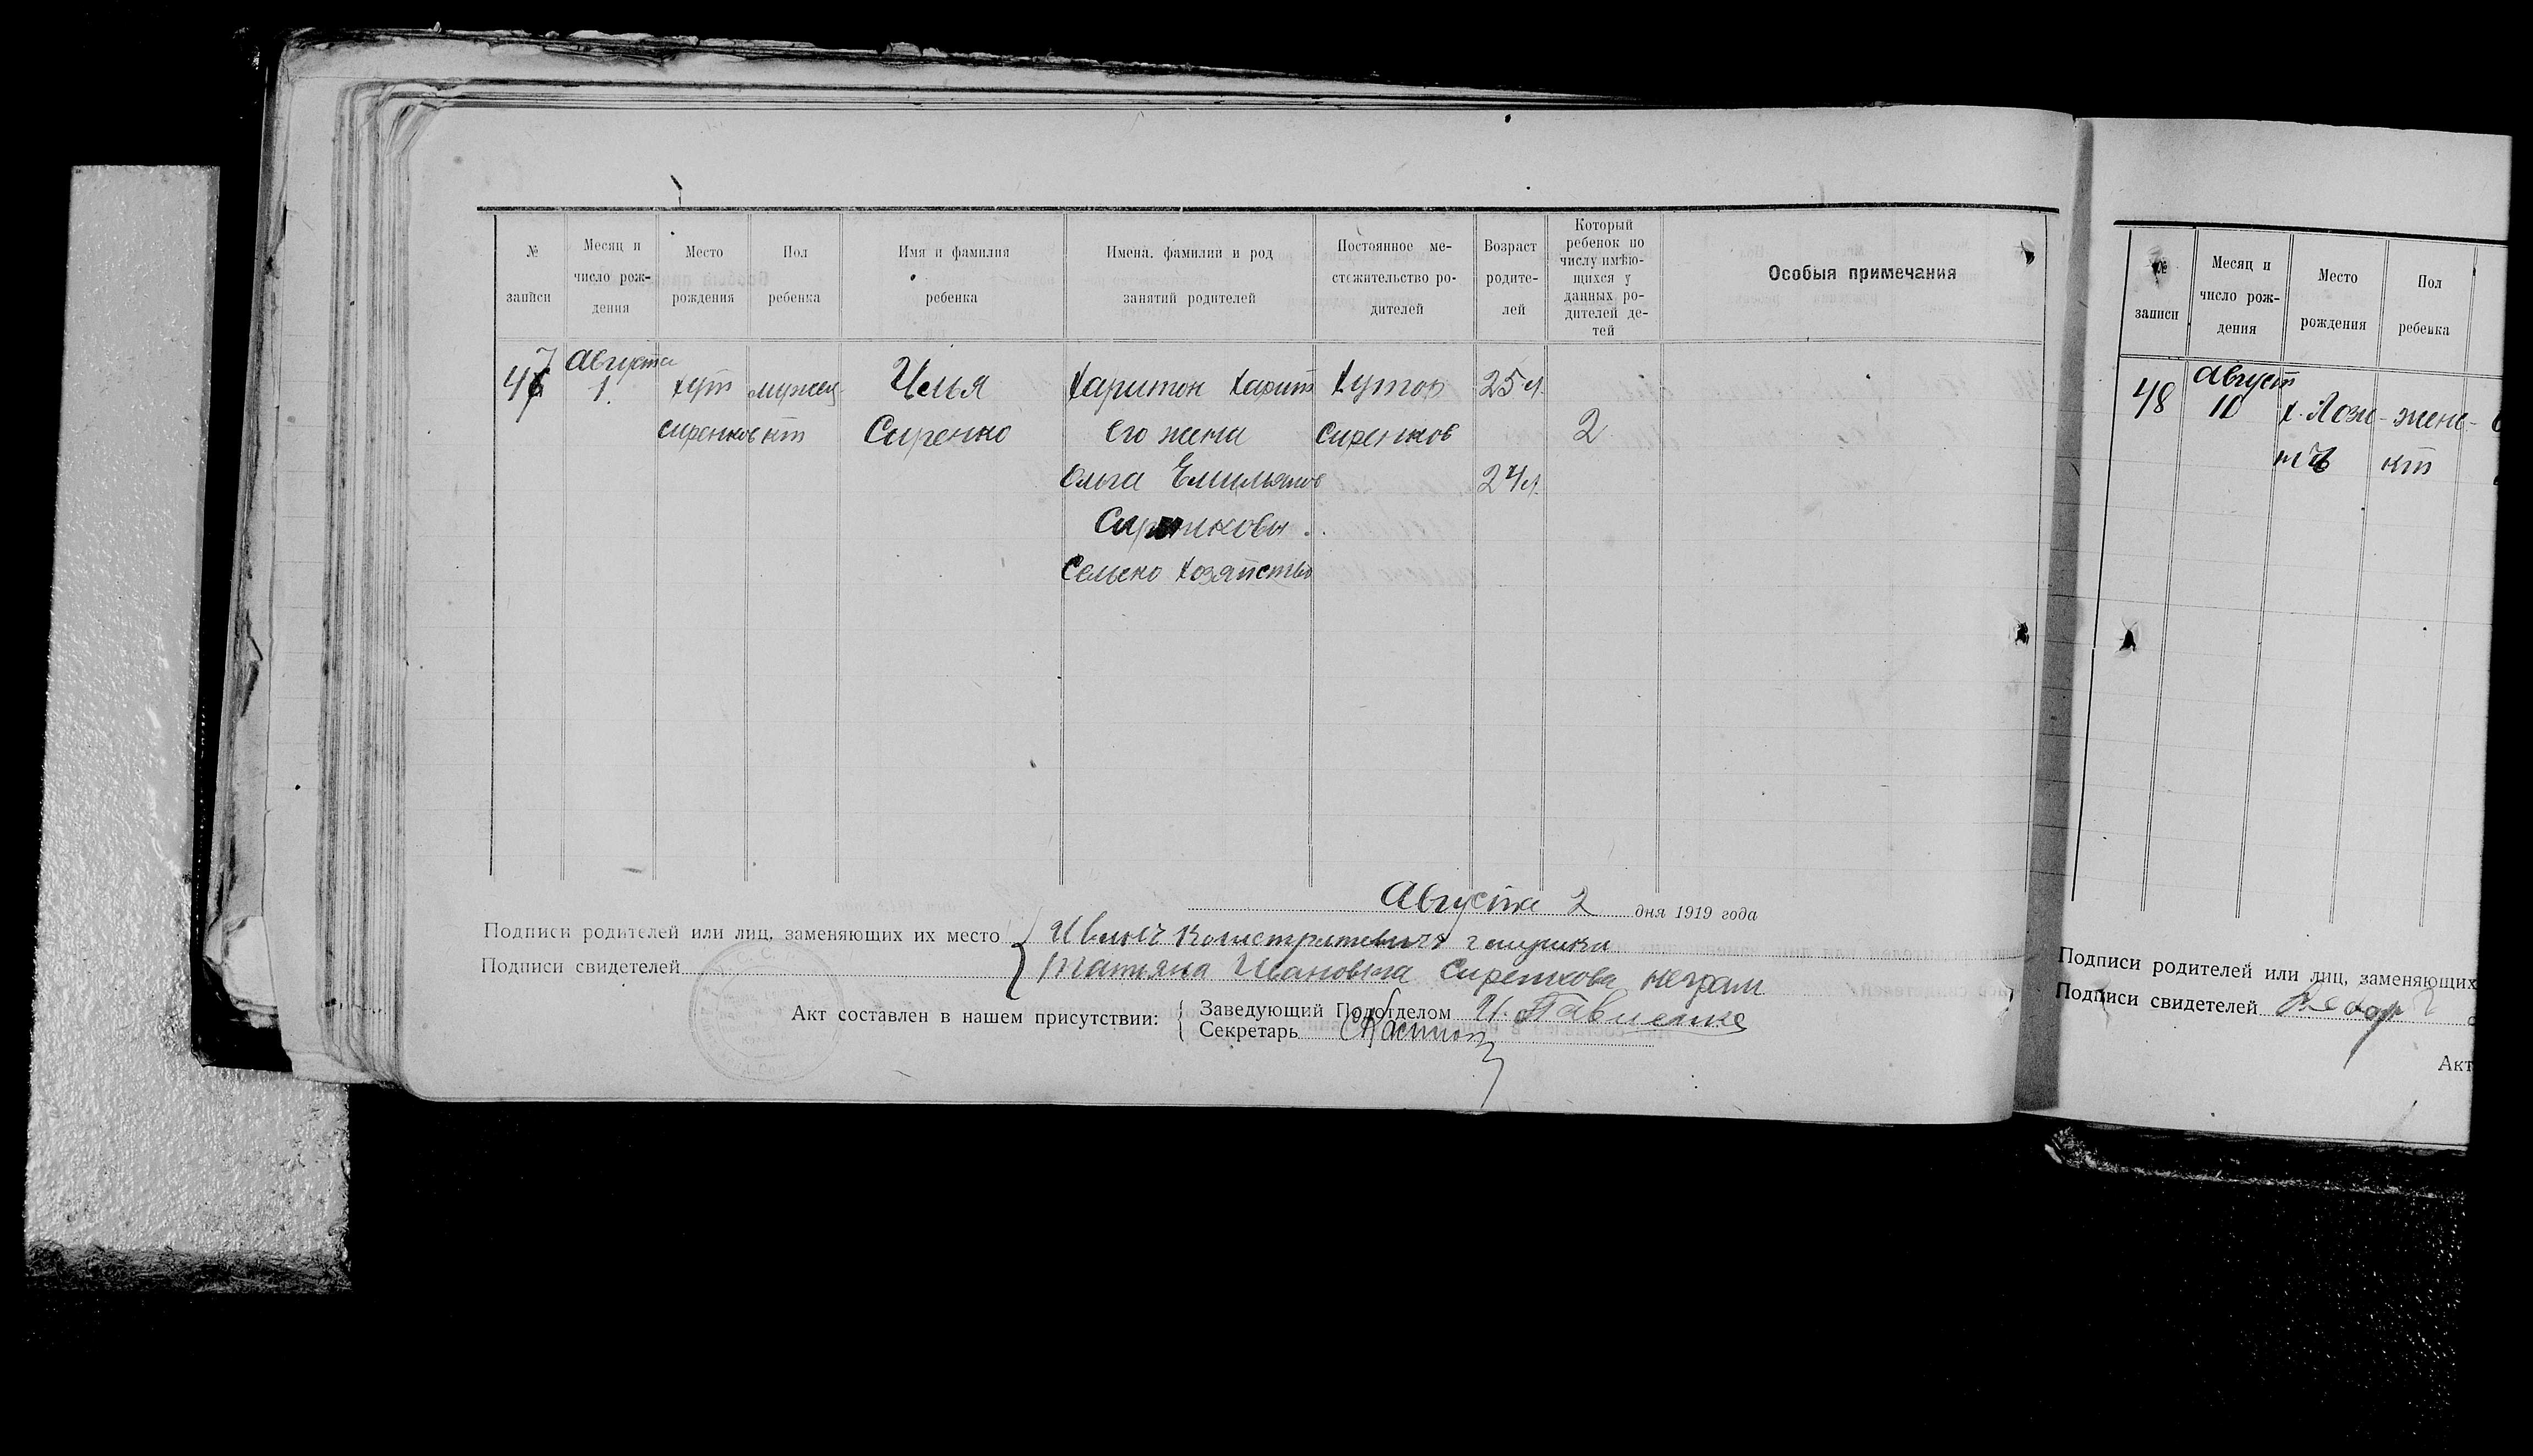 № записи
Месяц и число рож-дения
Место рождения
Пол ребенка
Имя и фамилия ребенка
Имена, фамилии и род занятий родителей
Постоянное ме-стожительство ро-дителей
Возраст родите-лей
Который ребенок по числу имѣю-щихся у данных ро-дителей де-тей
Особыя примечания
47 Августа 1 хут мужеς Илья Харитон Харит Хутор 25 л.
сиренков кт Сиренко его жена Сиренков 2
Ольга Емильянов 24 л.
Сиренковы.
Сельско хозяйство
Августа 2 дня 1919 года
Подписи родителей или лиц, заменяющих их место
Подписи свидетелей Татьяна Ивановна Сиренкова неграм
Акт составлен в нашем присутствии: Заведующий Подотделом И. Павленко
Секретарь
№ записи
Месяц и число рож-дения
Место рождения
Пол ребенка
48 Август 10 х. Лози- женс-
кт
Подписи родителей или лиц, заменяющих
Подписи свидетелей Федор
Акт